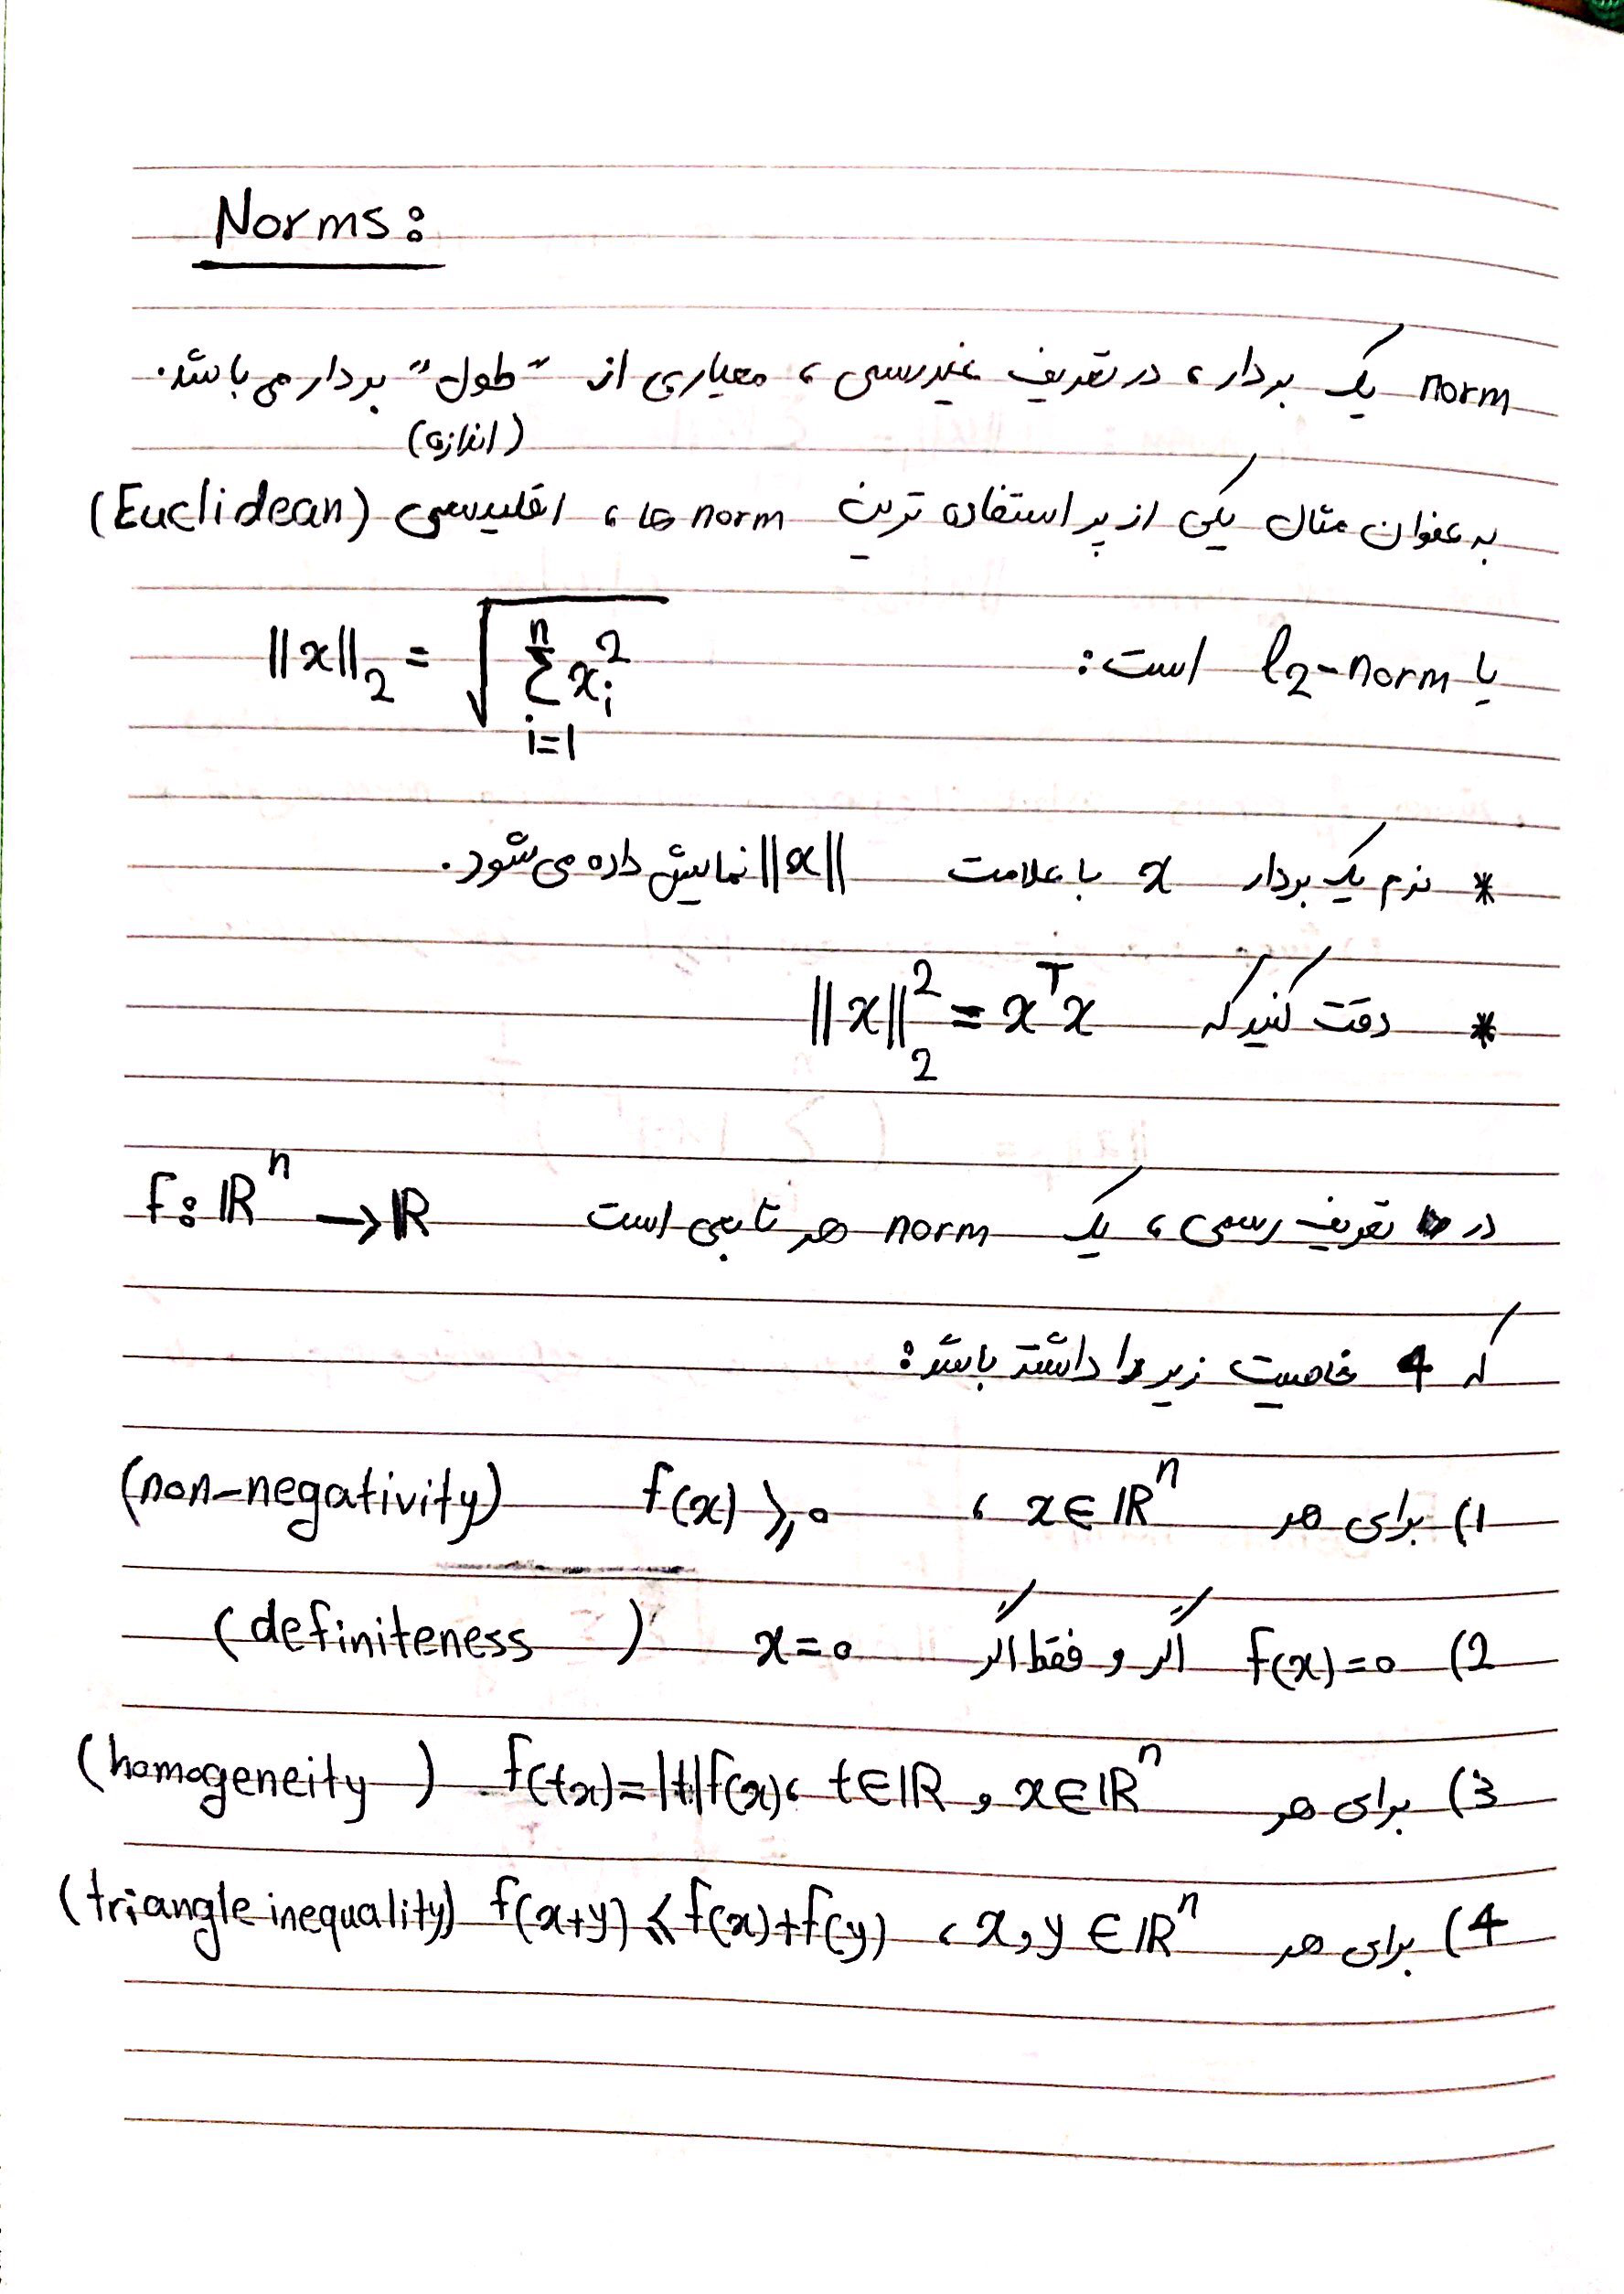 Norms:
norm یک بردار، در تعریف غیررسمی، معیاری از "طول" بردار می باشد.
(اندازه)
به عنوان مثال یکی از پر استفاده ترین norm ها، اقلیدسی (Euclidean)
یا l₂-norm است: ||x||₂ = √(∑ᵢ₌₁ⁿ xᵢ²)
* نرم یک بردار x با علامت ||x|| نمایش داده می شود.
* دقت کنید که ||x||₂² = xᵀx
در تعریف رسمی، یک norm هر تابعی است f: ℝⁿ → ℝ
که 4 خاصیت زیر را داشته باشد:
1) برای هر x ∈ ℝⁿ، f(x) ⩾ 0 (non-negativity)
2) f(x)=0 اگر و فقط اگر x=0 (definiteness)
3) برای هر x∈ℝⁿ و t∈ℝ، f(tx)=|t|f(x) (homogeneity)
4) برای هر x,y ∈ ℝⁿ، f(x+y) ⩽ f(x)+f(y) (triangle inequality)